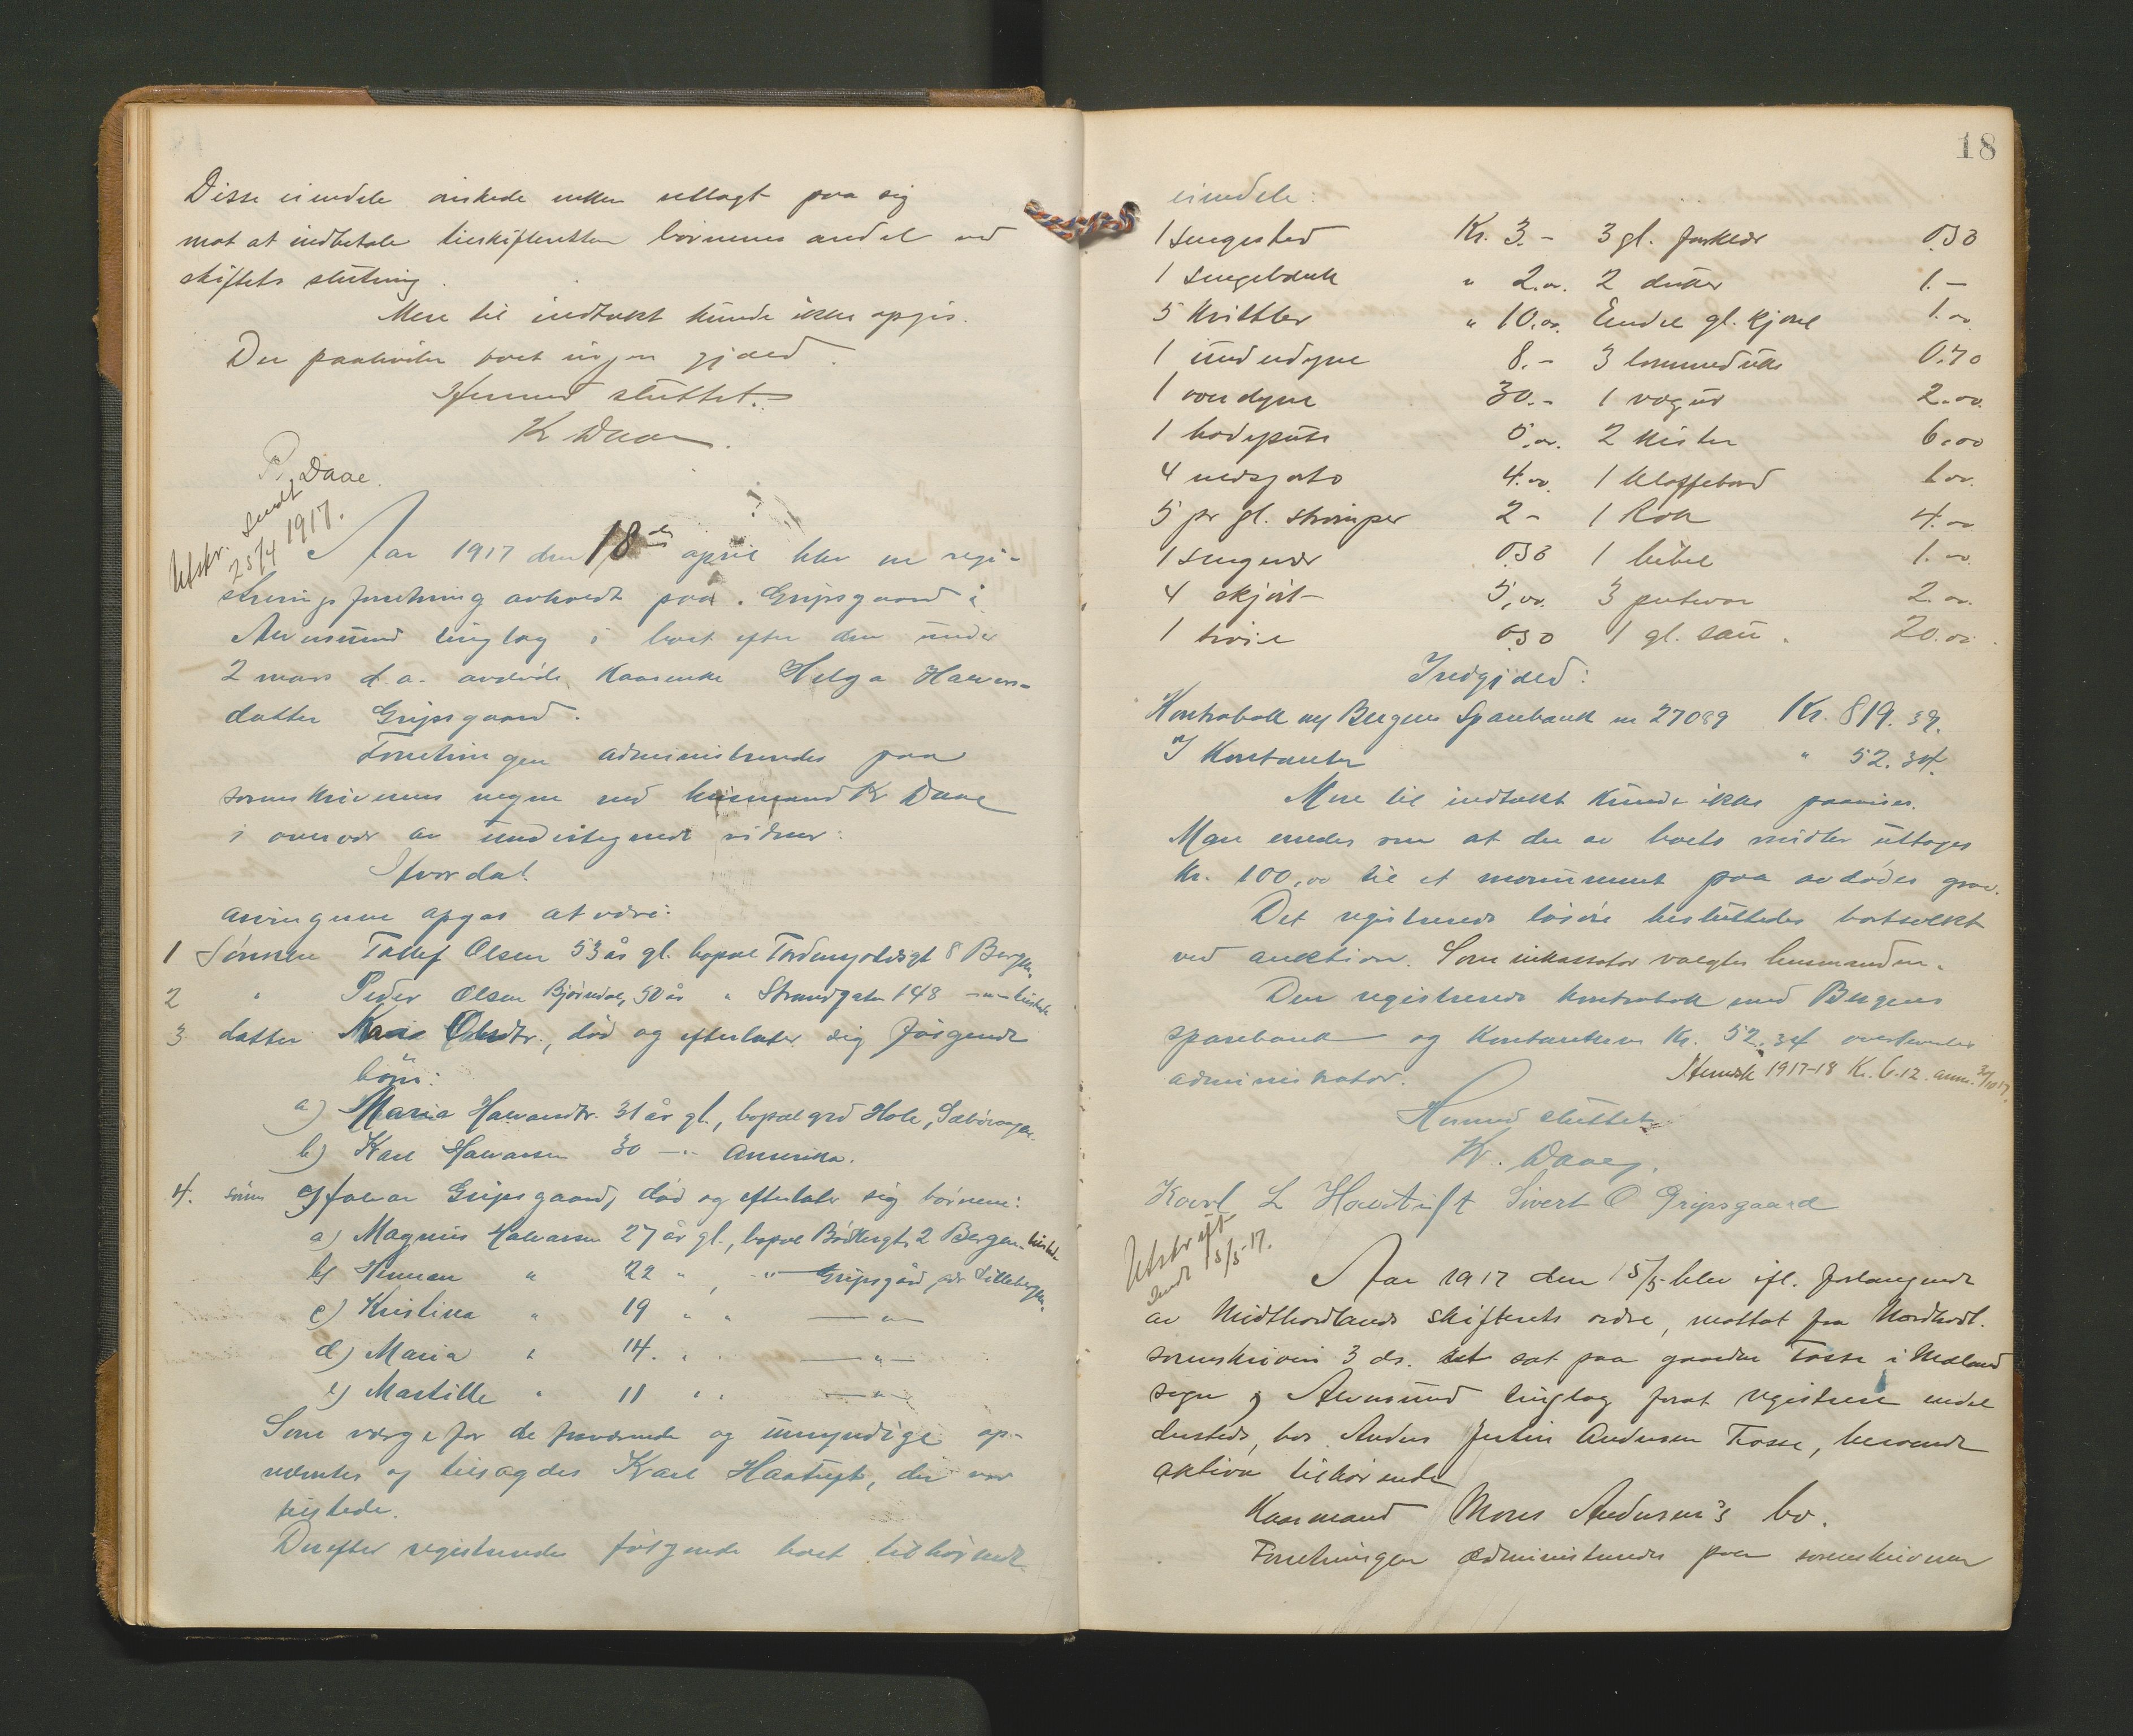 Disse eiendele ønskede enken utlagt paa sig
mot at indbetale til skifteretten børnenes andel ved
skiftets slutning.
Mere til indtækt kunde ikke opgis.
Der paahviler boet ingen gjæld.
Hermed sluttet.
K Daae.
P. Daae.
Utskr. sendt
25/4 1917.
Aar 1917 den 18de april blev en regi-
streringsforretning avholdt paa Gripsgaard i
Alversund tinglag i boet efter den under
2 mars d.a. avdøde kaarenke Helga Halvors-
datter Gripsgaard.
Forretningen administreredes paa
sorenskriverens vegne ved lensmand K Daae
i overvær av undertegnede vidner:
Hvorda!
Arvingerne opgas at være:
1 Sønnen Tollef Olsen 53 år gl. bopæl Tordenskjoldsgt 8 Bergen
2 " Peder Olsen Bjørndal, 50 år " Strandgaten 148 -"- tilstede
3 datter Kari Olsdtr., død og efterlater sig følgende
børn:
a) Maria Halvarsdtr. 31 år gl., bopæl grd Hole, Sæbøvaagen
b) Karl Halvarsen 30 -"- Amerika.
4. sønn Halvar Gripsgaard, død og efterlater sig børnene:
a) Magnus Halvarsen 27 år gl., bopæl Bødkergt. 2 Bergen. tilstede
b) Herman " 22 " , -"- Gripsgård pr Litlebergen.
c) Kristina " 19 " " -"-
d) Maria " 14. " " -"-
e) Martille " 11 " " -"-
Som værge for de fraværende og umyndige op-
nævntes og tilsagdes Karl Haatuft, der var
tilstede.
Derefter registreredes følgende boet tilhørende
18
eiendele:
1 sengested Kr. 3.- 3 gl. forklær 0.50
1 sengebænk " 2.00. 2 duker 1.-
5 kvitler " 10.00. Endel gl. kjole 1.00
1 underdyne 8.- 3 lommeduke 0.70
1 overdyne 30.- 1 vægur 2.00.
1 hodepute 5.00. 2 kister 6.00
4 uldskjorte 4.00. 1 klaffebord 1.00.
5 pr gl. strømper 2- 1 Rok 4.00
1 sengevær 0.50 1 bibel 1.00.
4 skjørt 5,00. 3 putevar 2.00.
1 trøie 0.50 1 gl. sau. 20.00.
Indgjæld:
Kontrabok m/ Bergens Sparebank nr 27089 Kr. 819.39.
I kontanter " 52.34.
Mere til indtækt kunde ikke paavises.
Man enedes om at der av boets midler uttages
Kr. 100,00 til et monument paa avdødes grav.
Det registrerede løsøre besluttedes bortsolgt
ved auktion. Som inkassator valgtes lensmanden.
Den registrerede kontrabok med Bergens
sparebank og kontanterne Kr. 52.34 overleveredes
administrator.
Hermed sluttet.
K. Daae.
Karl L Haatuft Sivert O Gripsgaard
Utskrift
sendt 15/5-17.
Aar 1917 den 15/5 blev ifl. forlangende
av Midthordlands skifterets ordre, mottat fra Nordhordl.
sorenskriveri 3 ds. ret sat paa gaarden Fosse i Meland
sogn og Alversund tinglag forat registrere endel
dersteds, hos Anders Justin Andersen Fosse, beroende
aktiva tilhørende
Kaarmand Mons Andersen's bo.
Forretningen administreredes paa sorenskriverens